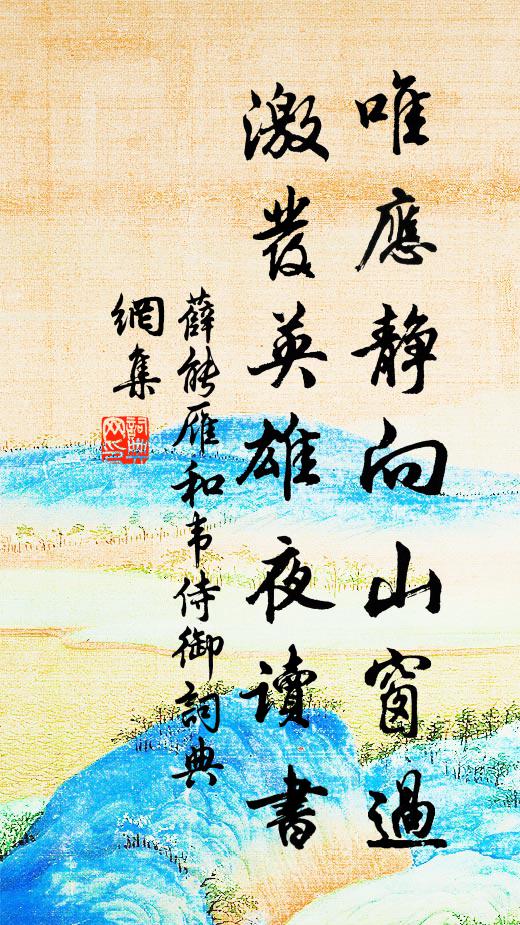 唯應靜向山窗過
激發英雄夜讀書
薛能雁和韦侍御詞典
網集
詞典網